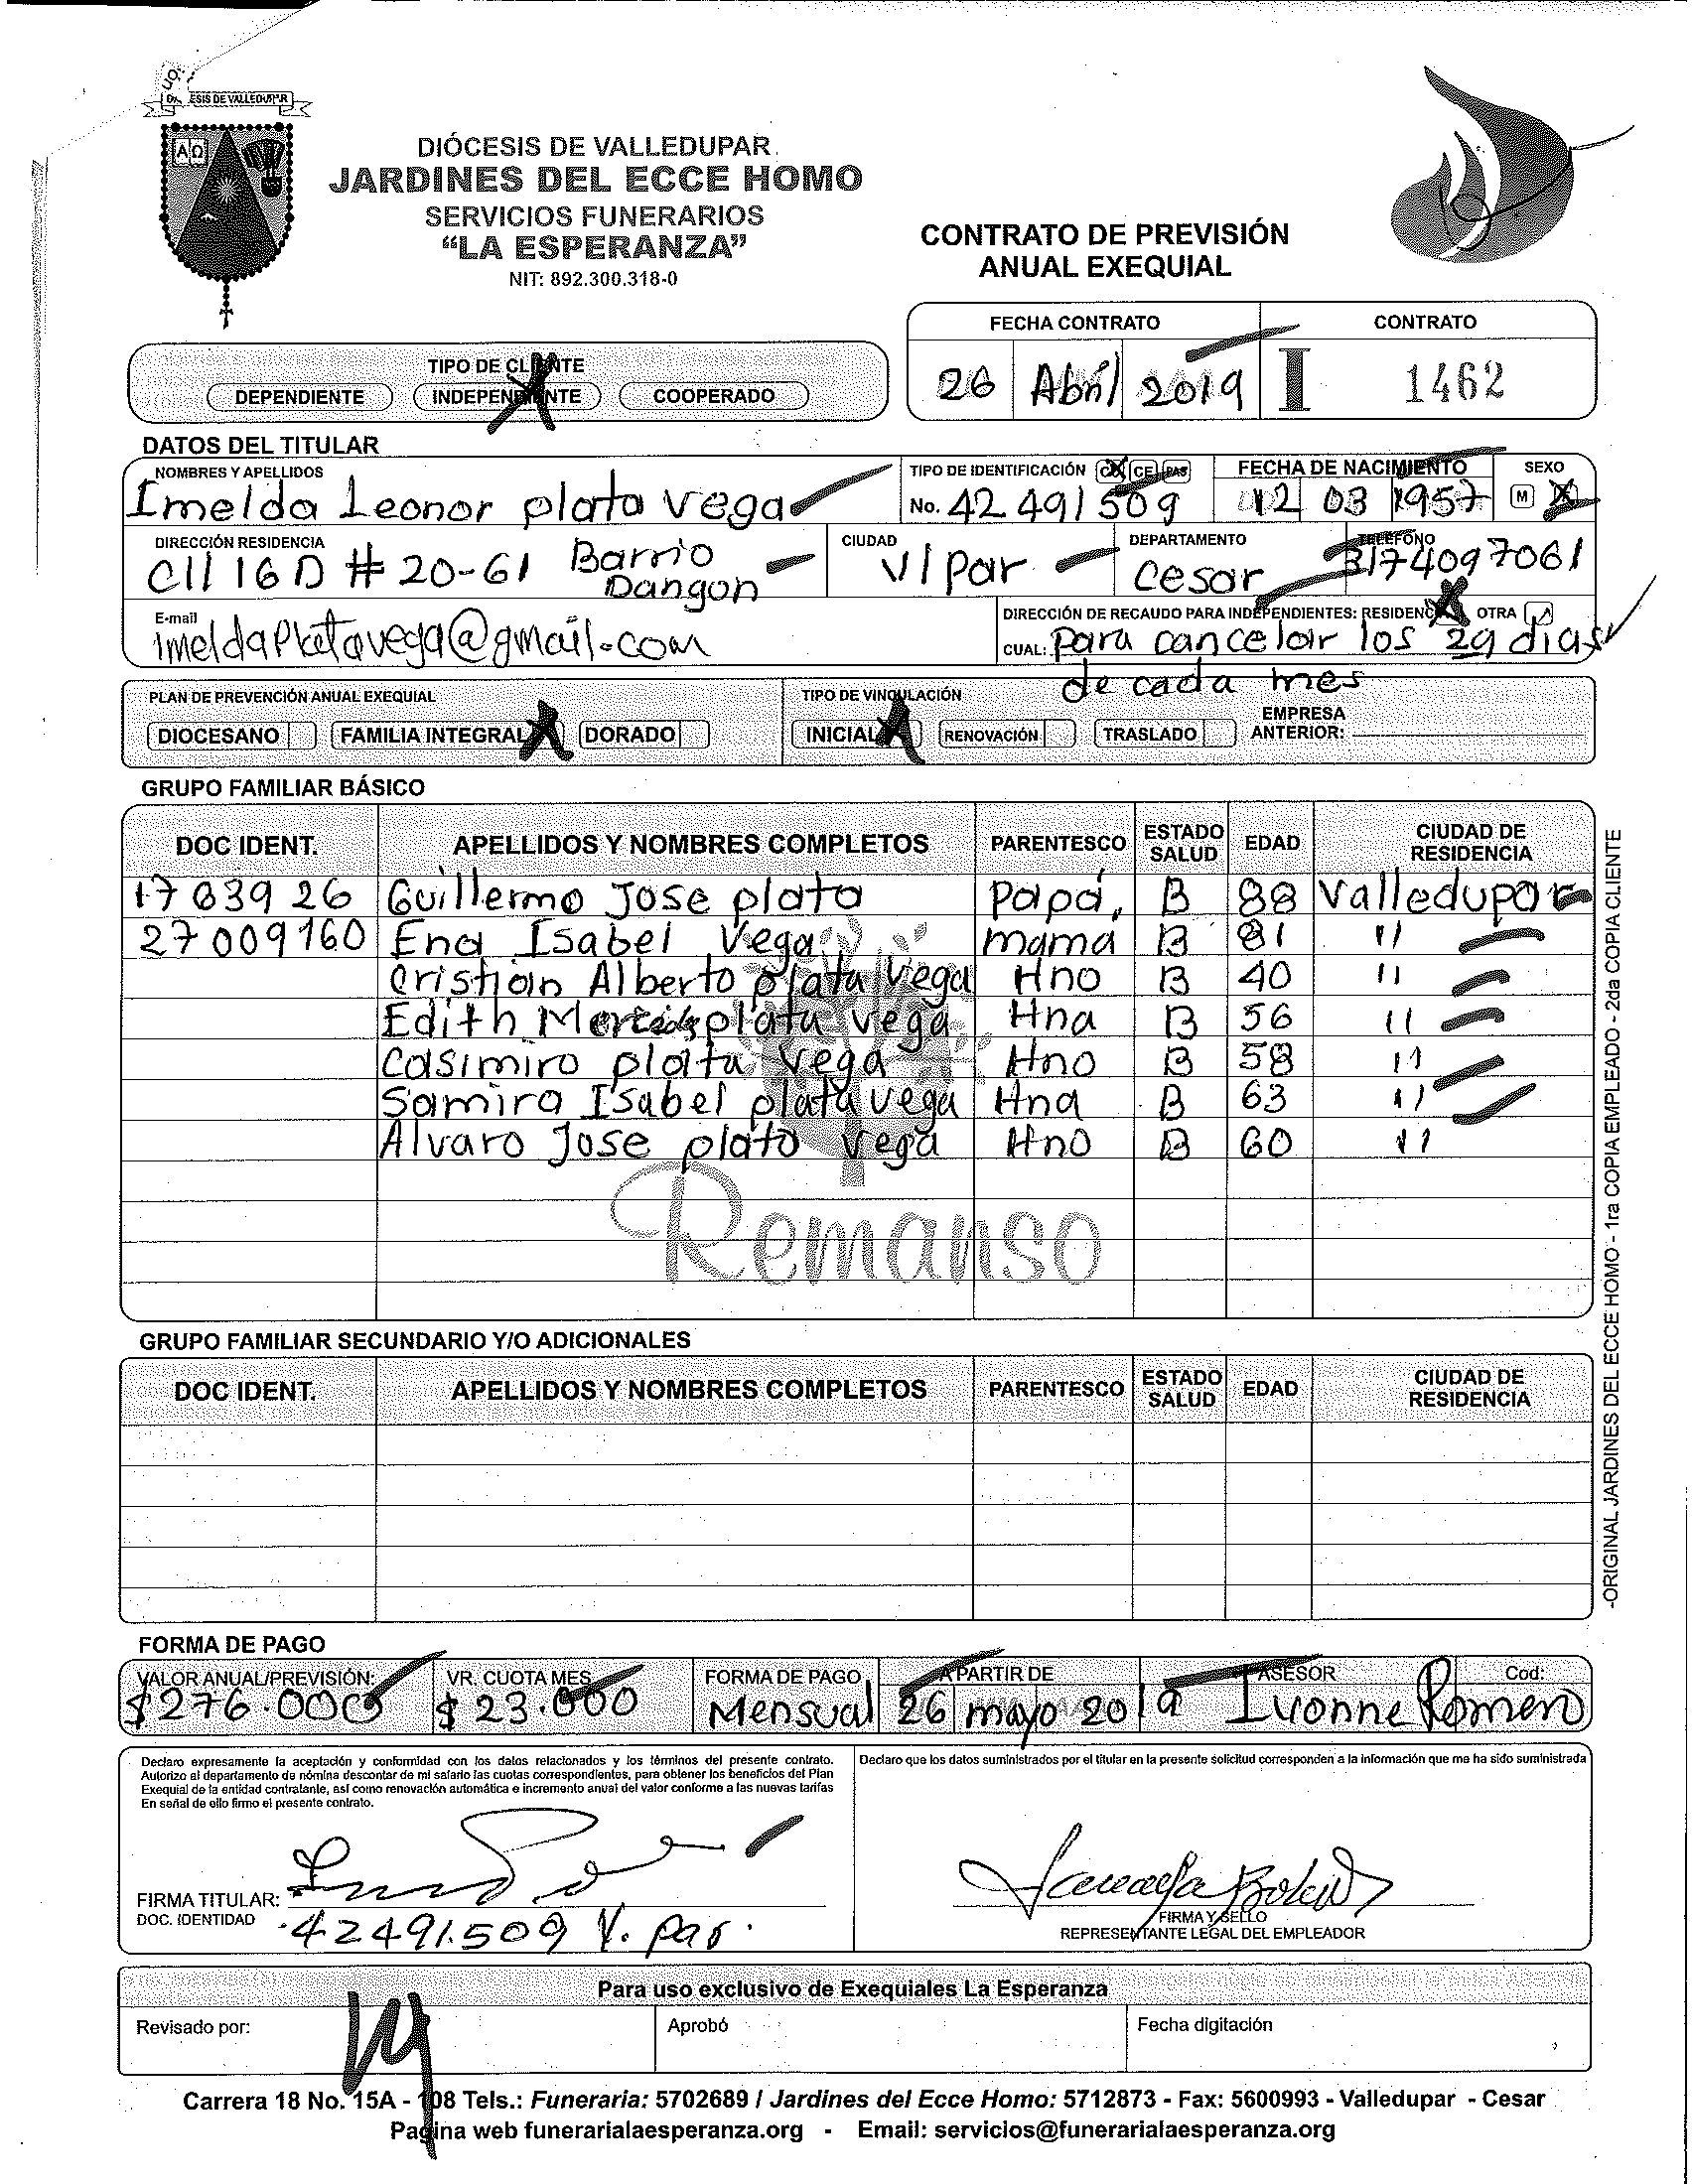 DIÓCESIS DE VALLEDUPAR
JARDINES DEL ECCE HOMO
SERVICIOS FUNERARIOS
“LA ESPERANZA”
NIT: 892.300.318-0
CONTRATO DE PREVISIÓN
ANUAL EXEQUIAL
FECHA CONTRATO CONTRATO
26 Abril 2019 I 1462
TIPO DE CLIENTE
DEPENDIENTE INDEPENDIENTE COOPERADO
DATOS DEL TITULAR
NOMBRES Y APELLIDOS TIPO DE IDENTIFICACIÓN CC CE PAS FECHA DE NACIMIENTO SEXO
Imelda Leonor plata vega No. 42 491 509 12 03 1957 M
DIRECCIÓN RESIDENCIA CIUDAD DEPARTAMENTO TELÉFONO
Cll 16 D # 20-61 Barrio Dangon V/par Cesar 3174097061
E-mail DIRECCIÓN DE RECAUDO PARA INDEPENDIENTES: RESIDENCIA OTRA
imeldaplatavega@gmail.com CUAL: para cancelar los 29 dias
de cada mes
PLAN DE PREVENCIÓN ANUAL EXEQUIAL TIPO DE VINCULACIÓN
DIOCESANO FAMILIA INTEGRAL DORADO INICIAL RENOVACIÓN TRASLADO EMPRESA ANTERIOR:
GRUPO FAMILIAR BÁSICO
DOC IDENT. APELLIDOS Y NOMBRES COMPLETOS PARENTESCO ESTADO SALUD EDAD CIUDAD DE RESIDENCIA
Guillermo Jose plata Papá, B 88 Valledupar
27 009160 Ena Isabel Vega mama B 81 "
Cristian Alberto plata vega Hno B 40 "
Edith Mercedes plata vega Hna B 56 "
Casimiro plata vega Hno B 58 "
Samira Isabel plata vega Hna B 63 "
Alvaro Jose plata vega Hno B 60 "
Remanso
GRUPO FAMILIAR SECUNDARIO Y/O ADICIONALES
DOC IDENT. APELLIDOS Y NOMBRES COMPLETOS PARENTESCO ESTADO SALUD EDAD CIUDAD DE RESIDENCIA
-ORIGINAL JARDINES DEL ECCE HOMO - 1ra COPIA EMPLEADO - 2da COPIA CLIENTE
FORMA DE PAGO
VALOR ANUAL/PREVISIÓN: VR. CUOTA MES FORMA DE PAGO A PARTIR DE ASESOR Cod:
$276.000 $23.000 Mensual 26 mayo 2019 Ivonne Romero
Declaro expresamente la aceptación y conformidad con los datos relacionados y los términos del presente contrato.
Autorizo al departamento de nómina descontar de mi salario las cuotas correspondientes, para obtener los beneficios del Plan
Exequial de la entidad contratante, así como renovación automática e incremento anual del valor conforme a las nuevas tarifas
En señal de ello firmo el presente contrato.
Declaro que los datos suministrados por el titular en la presente solicitud corresponden a la información que me ha sido suministrada
FIRMA TITULAR:
DOC. IDENTIDAD 42491.509 V. par.
FIRMA Y SELLO
REPRESENTANTE LEGAL DEL EMPLEADOR
Para uso exclusivo de Exequiales La Esperanza
Revisado por: Aprobó Fecha digitación
Carrera 18 No. 15A - 108 Tels.: Funeraria: 5702689 / Jardines del Ecce Homo: 5712873 - Fax: 5600993 - Valledupar - Cesar
Pagina web funerarialaesperanza.org - Email: servicios@funerarialaesperanza.org